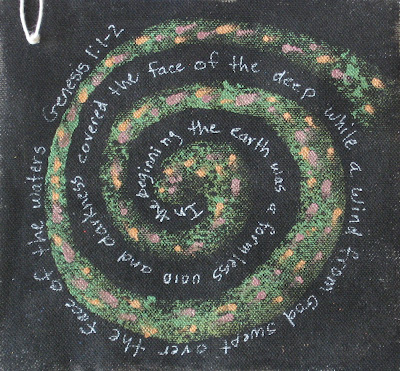 In the beginning the earth was a formless void and darkness covered the face of the deep while a wind from God swept over the face of the waters Genesis 1:1-2